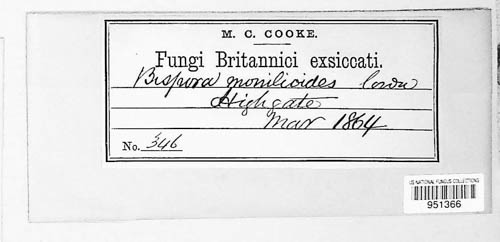 M. C. COOKE.
Fungi Britannici exsiccati.
Bispora monilioides Corda
Highgate
Mar 1864
No. 346
US NATIONAL FUNGUS COLLECTIONS
951366